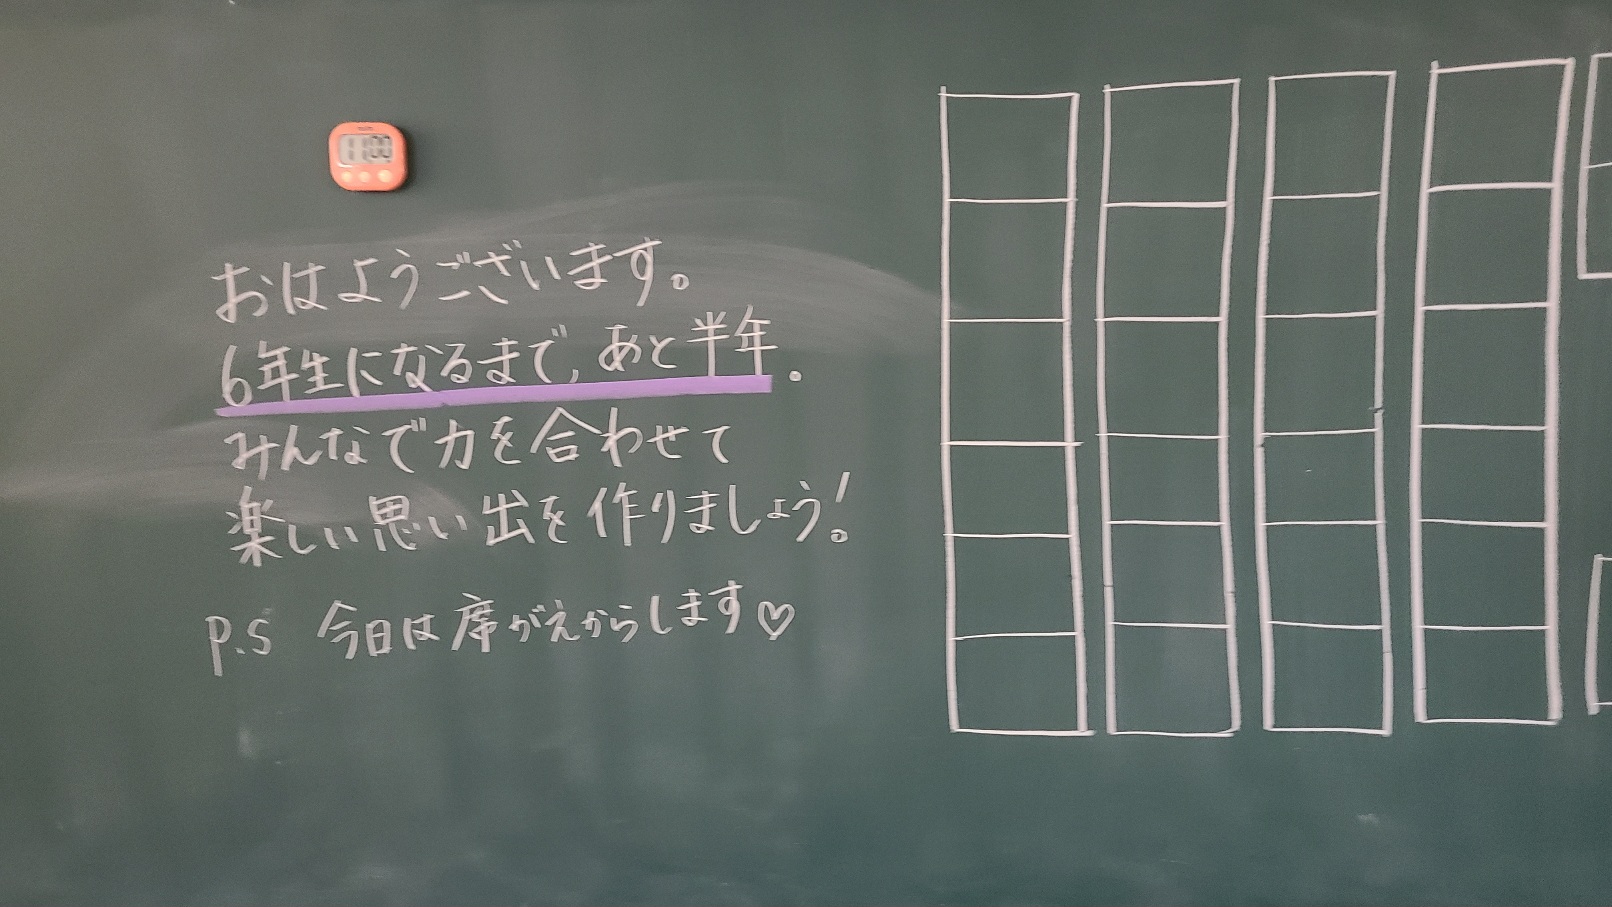 11:00
おはようございます。
6年生になるまで、あと半年。
みんなで力を合わせて
楽しい思い出を作りましょう!
P.S 今日は席がえからします♡